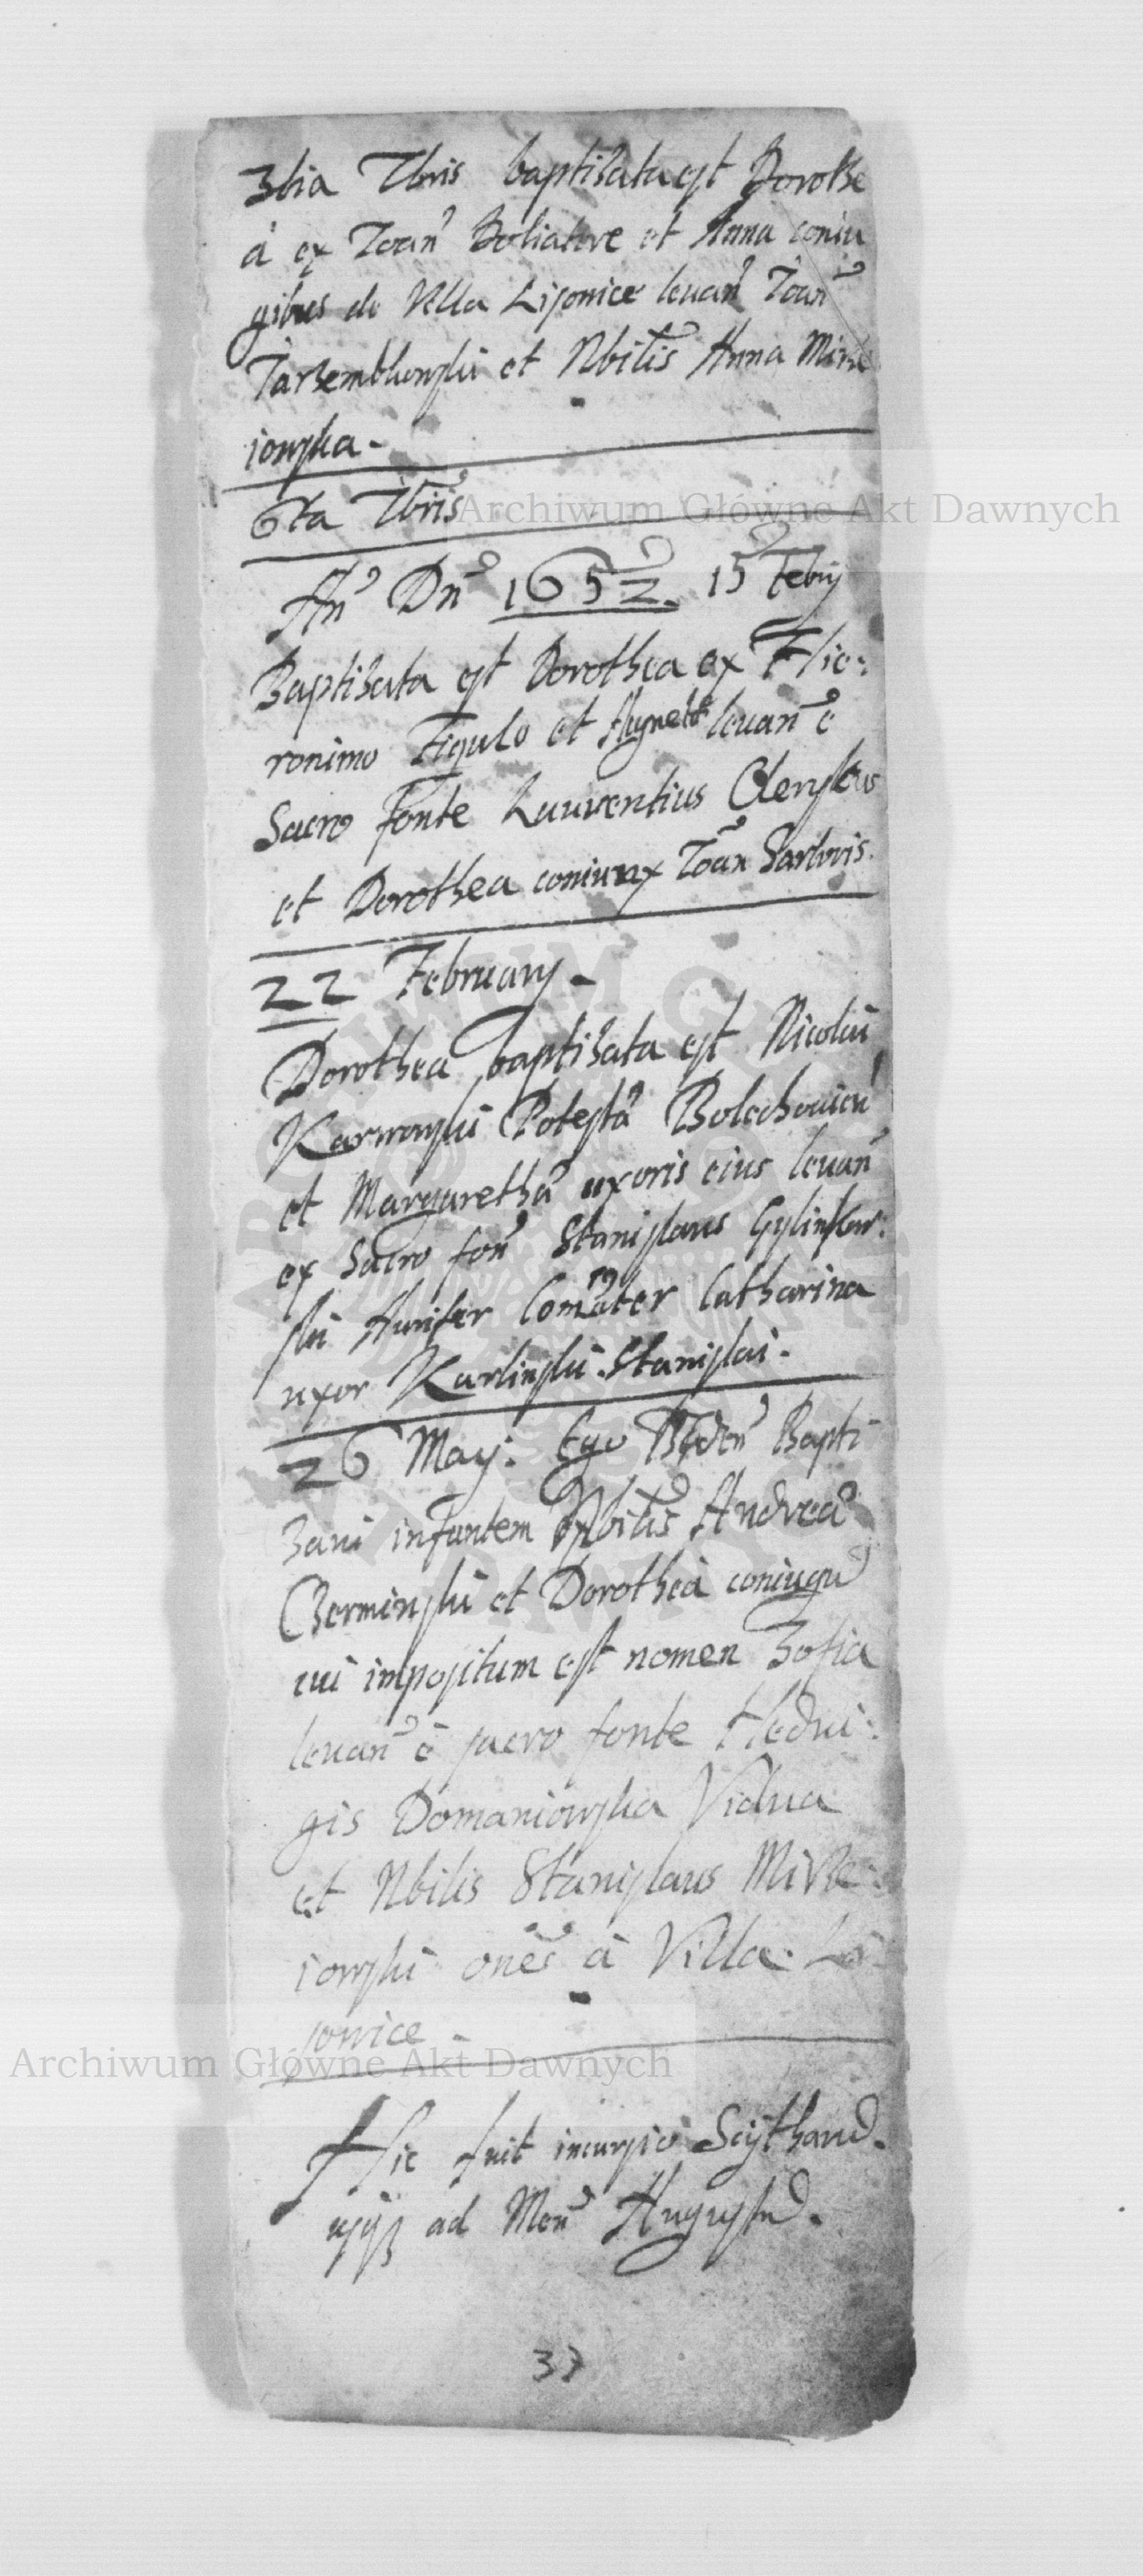 3tia 7bris baptisata est Dorothe
a ex Joan Boliatore et Anna coniu
gibus de Villa Lisowice levan Joan
Jarzembkowski et Nbilis Anna Mirze
iowska -
6ta 7bris
Archiwum Główne Akt Dawnych
An Dn 1652. 15 Febrij
Baptisata est Dorothea ex Hie:
ronimo Figulo et Agnete levan e
Sacro fonte Laurentius Olenskus
et Dorothea coniunx Joan Sartoris.
22 February -
Dorothea baptisata est Nicolai
Karwowski Potesta Bolechovien
et Margaretha uxoris eius levan
ex Sacro fon Stanislaus
ski Aurifer Comater Catharina
uxor Karlinski. Stanislai.
26 May: Ego Bapti
zavi infantem Nbilis Andrea
Czerminski et Dorothea coniugu
cui impositum est nomen Zofia
levan e sacro fonte Hedvi:
gis Domaniowska Vidua
et Nbilis Stanislaus Mirze:
iowski ones a Villa Li
sowice -
Archiwum Główne Akt Dawnych
Hic fuit incursio Scijtharu.
usq ad Men Augustu.
37